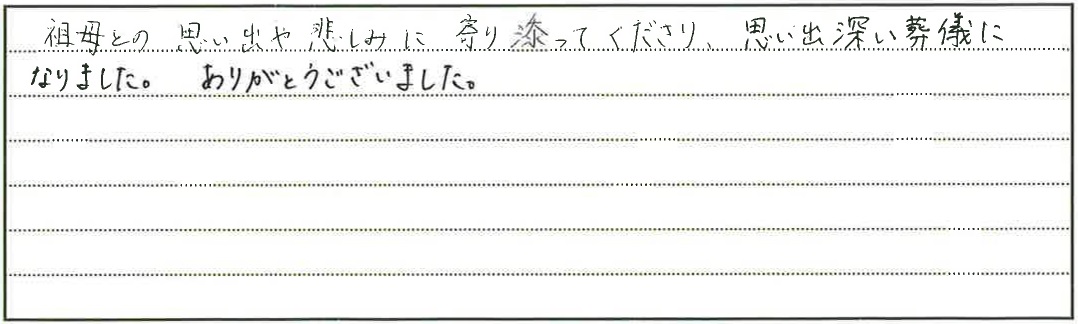 祖母との思い出や悲しみに寄り添ってくださり、思い出深い葬儀に
なりました。 ありがとうございました。